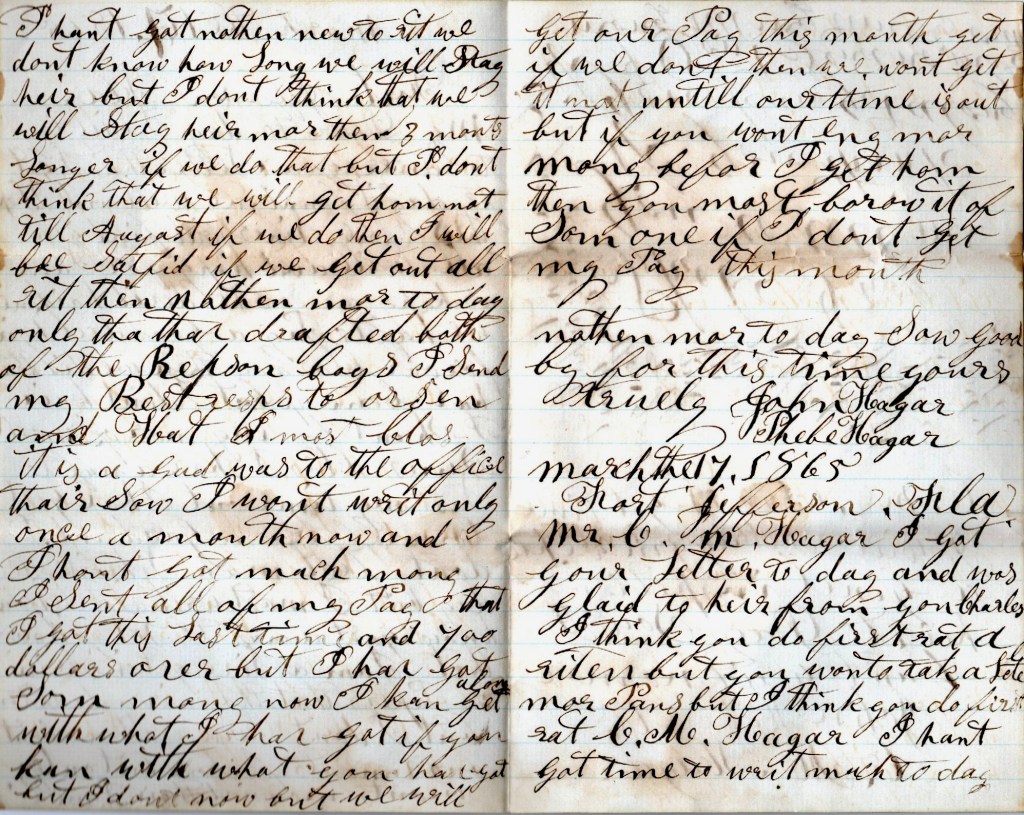 I hant got nothen new to rit we
dont know how Long we will Stay
heir but I dont think that we
will Stay heir mor then 3 monts
Longer if we do that but I dont
think that we will get hom not
till August if we do then I will
bae Satfid if we get out all
rit then nothen mor to day
only tha thar drafted both
of the Repson boys I Send
my Best resps to orsen
and
it is a gud was to the office
thair Sow I wont writ only
once a month now and
I hant got much mony
I Sent all of my Pay that
I got this Last time and 400
dollars orer but I har got
Som mony now I kan get along
with what I har got if you
kan with what you har got
but I dont now but we will
get our Pay this month get
if we dont then we wont get
it not untill our time is out
but if you wont eny mor
mony befor I get hom
then you most borow it of
Som one if I dont get
my Pay this month
nothen mor to day Sow good
by for this time yours
truely John Hagar
Phebe Hagar
march the 17, 1865
Fort Jefferson, Fla
Mr. C. M. Hagar I got
your Letter to day and was
glaid to heir from you Charles
I think you do first rat
riten but you wonto tak a Lite
mor Pans but I think you do first
rat C. M. Hagar I hant
got time to writ much to day